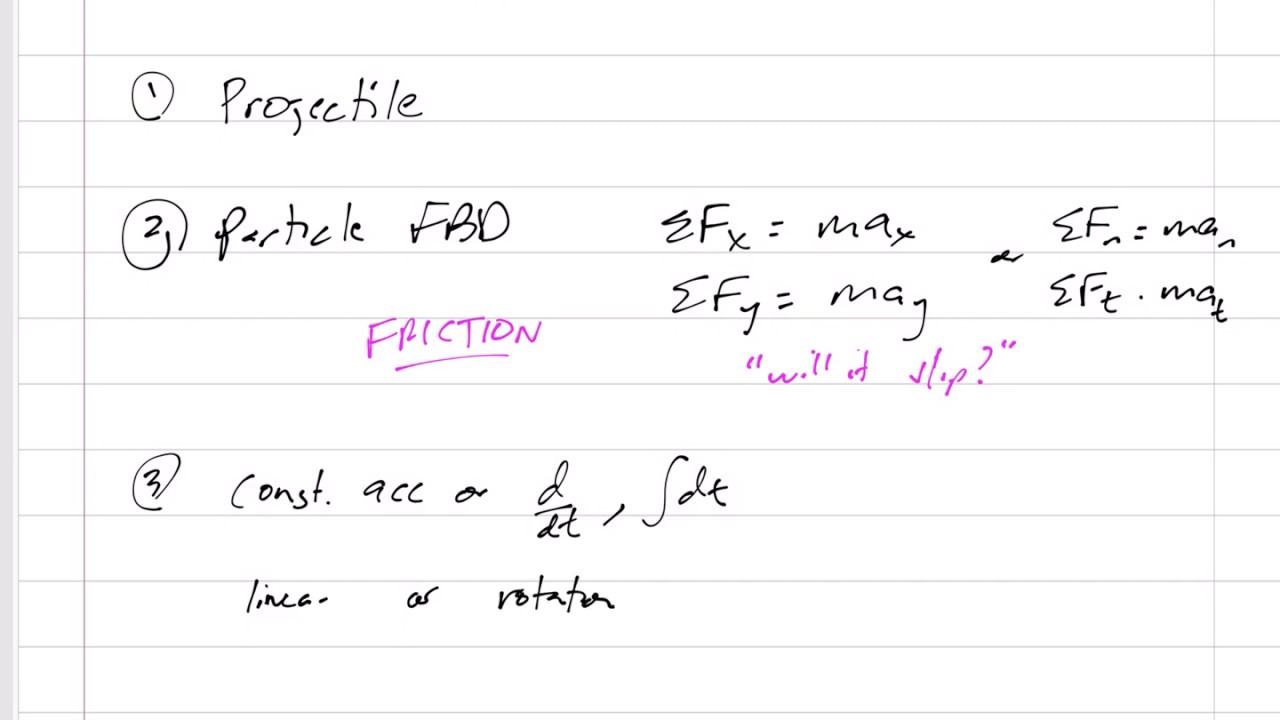 ① Projectile
② Particle FBD ΣFx = max or ΣFn = man
ΣFy = may ΣFt = mat
FRICTION "will it slip?"
③ Const. acc or d/dt, ∫dt
linear or rotation